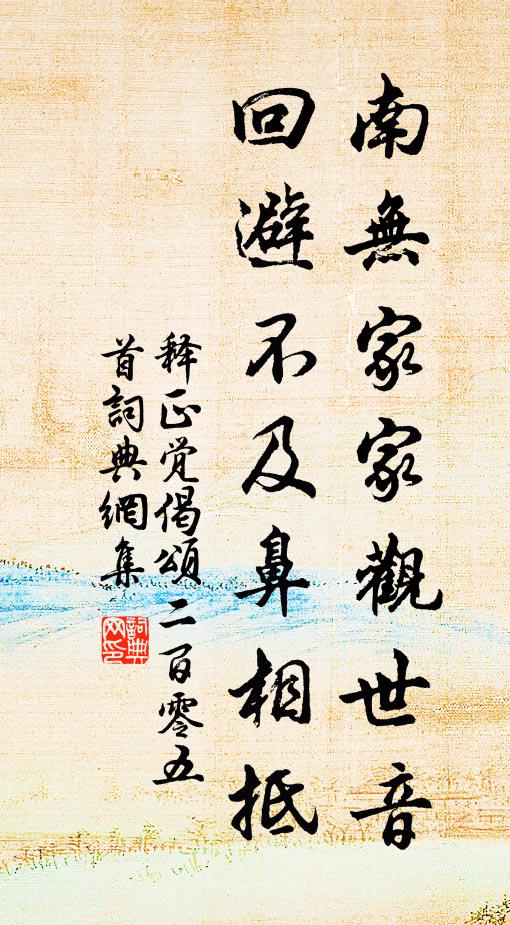 南無家家觀世音
回避不及鼻相抵
释正觉偈頌二百零五
首詞典網集
詞典网印